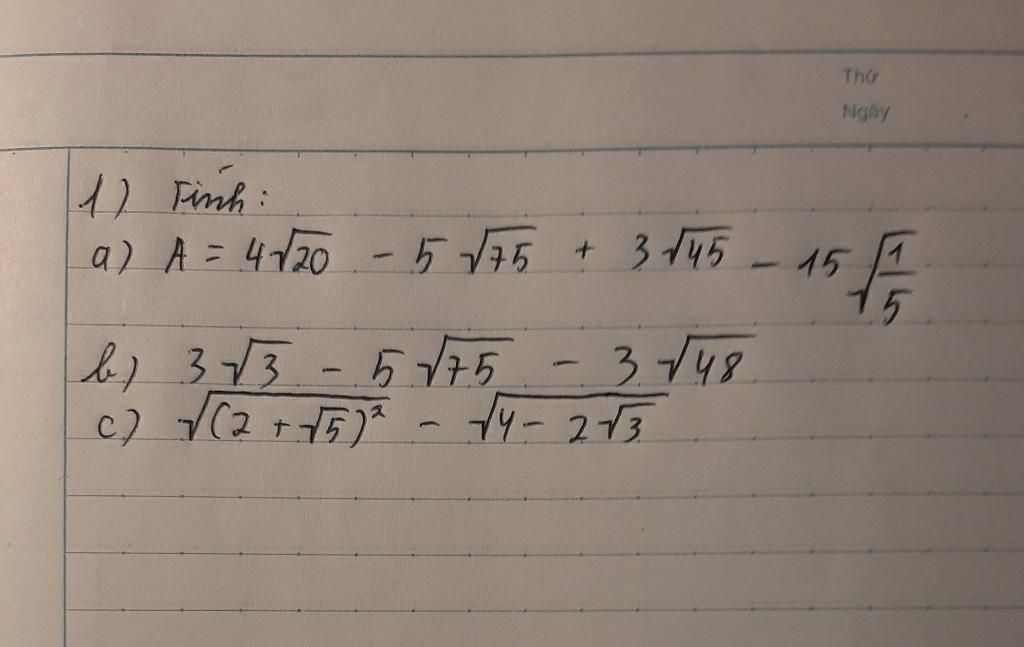 Thứ
Ngày
1) Tính:
a) A = 4√20 - 5√75 + 3√45 - 15√(1/5)
b) 3√3 - 5√75 - 3√48
c) √((2 + √5)²) - √(4 - 2√3)